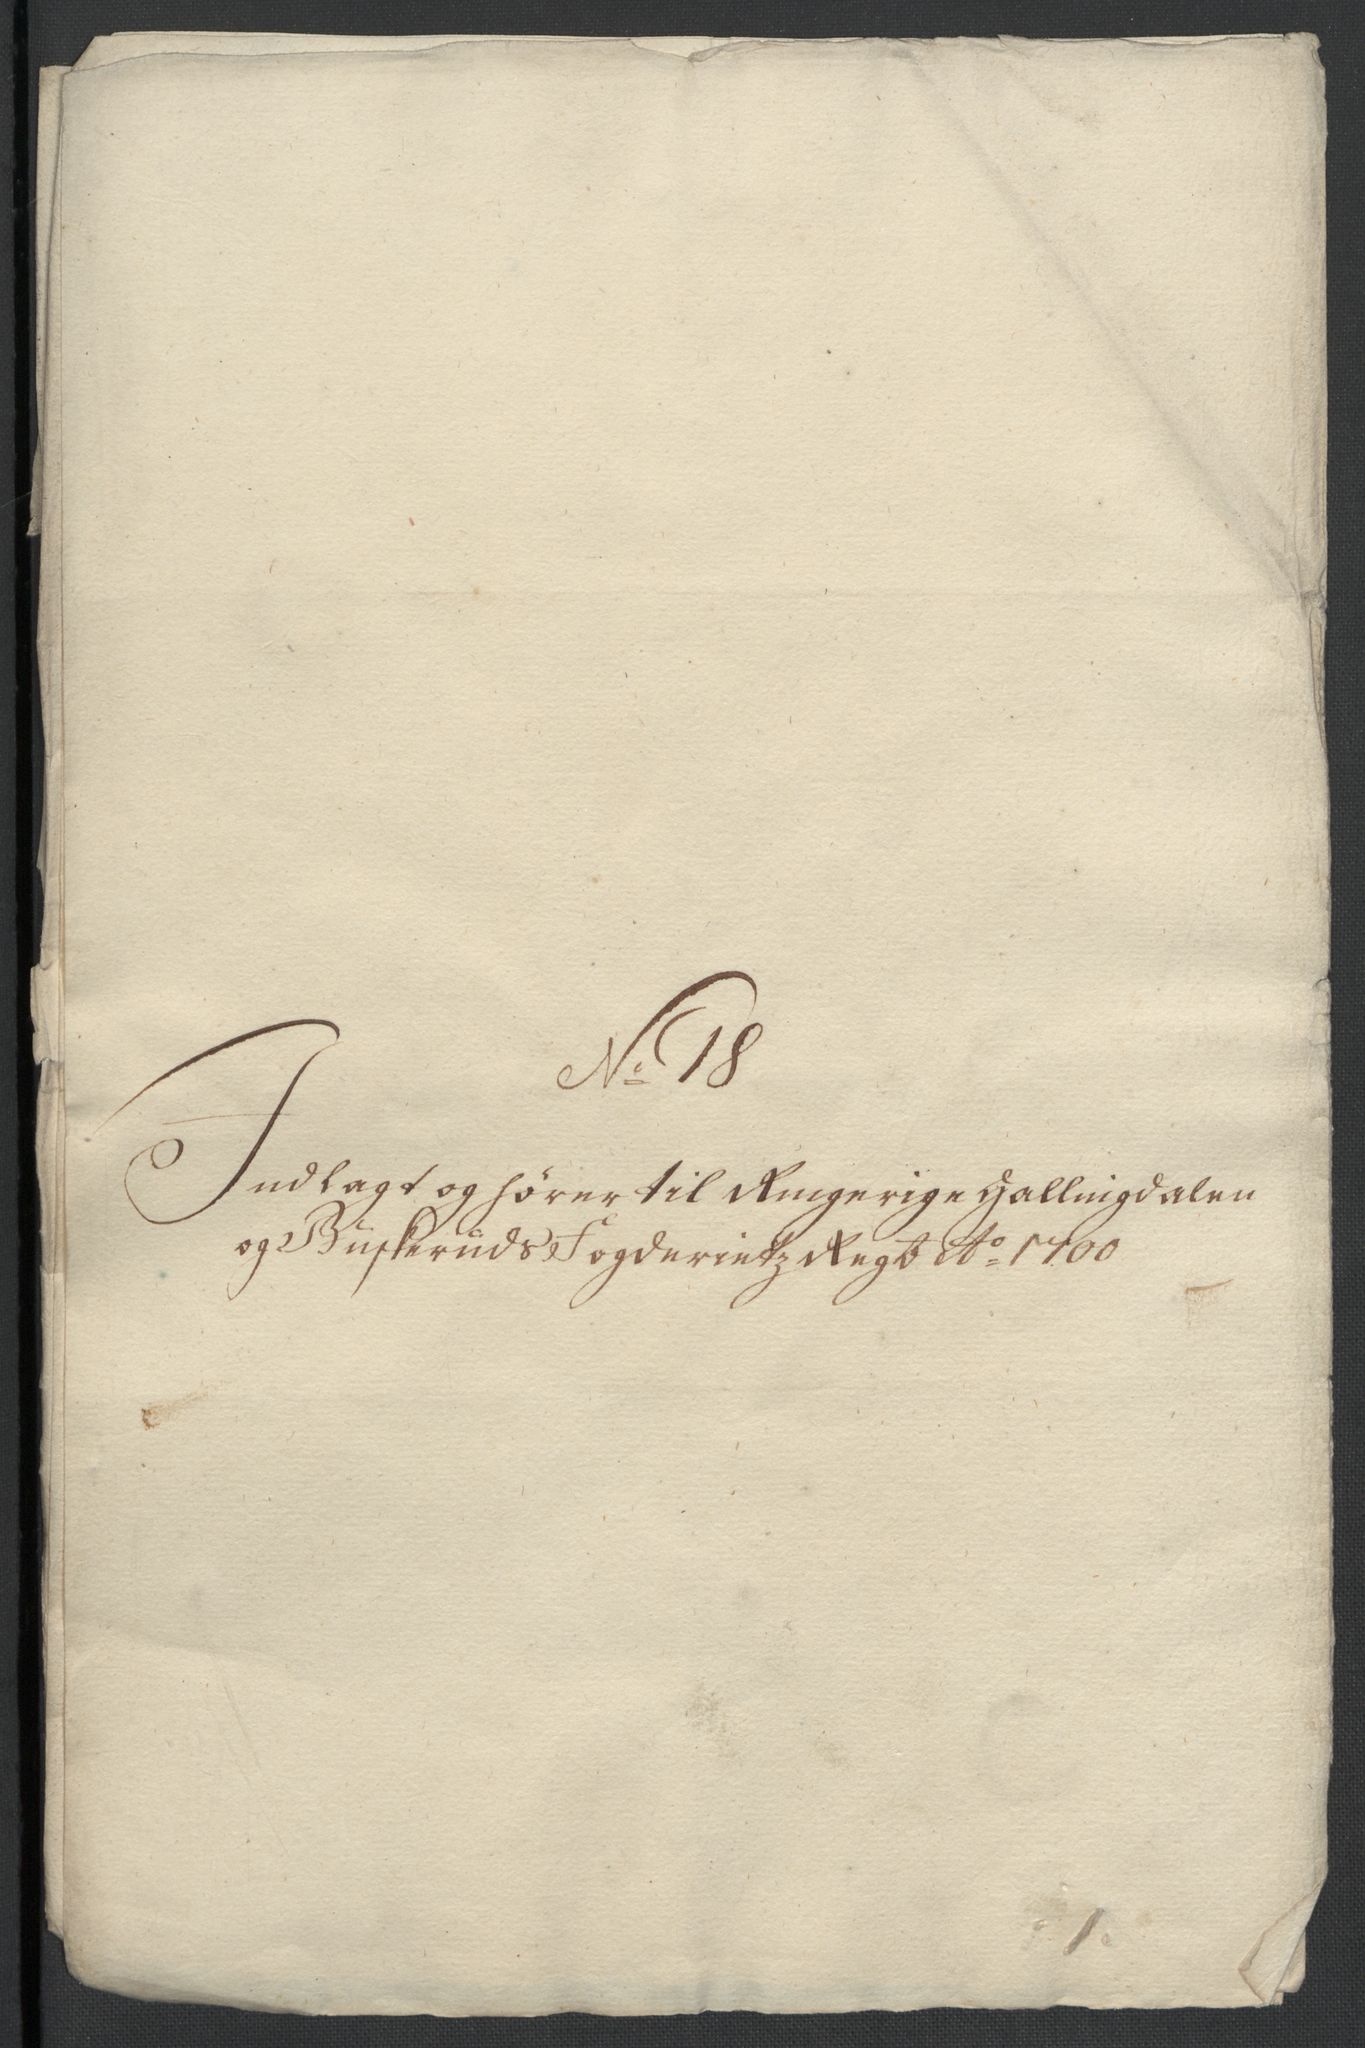 No 18
Indlagt og hører til Ringerige Hallingdalen
og Buskeruds Fogderietz Regb Ao 1700
1